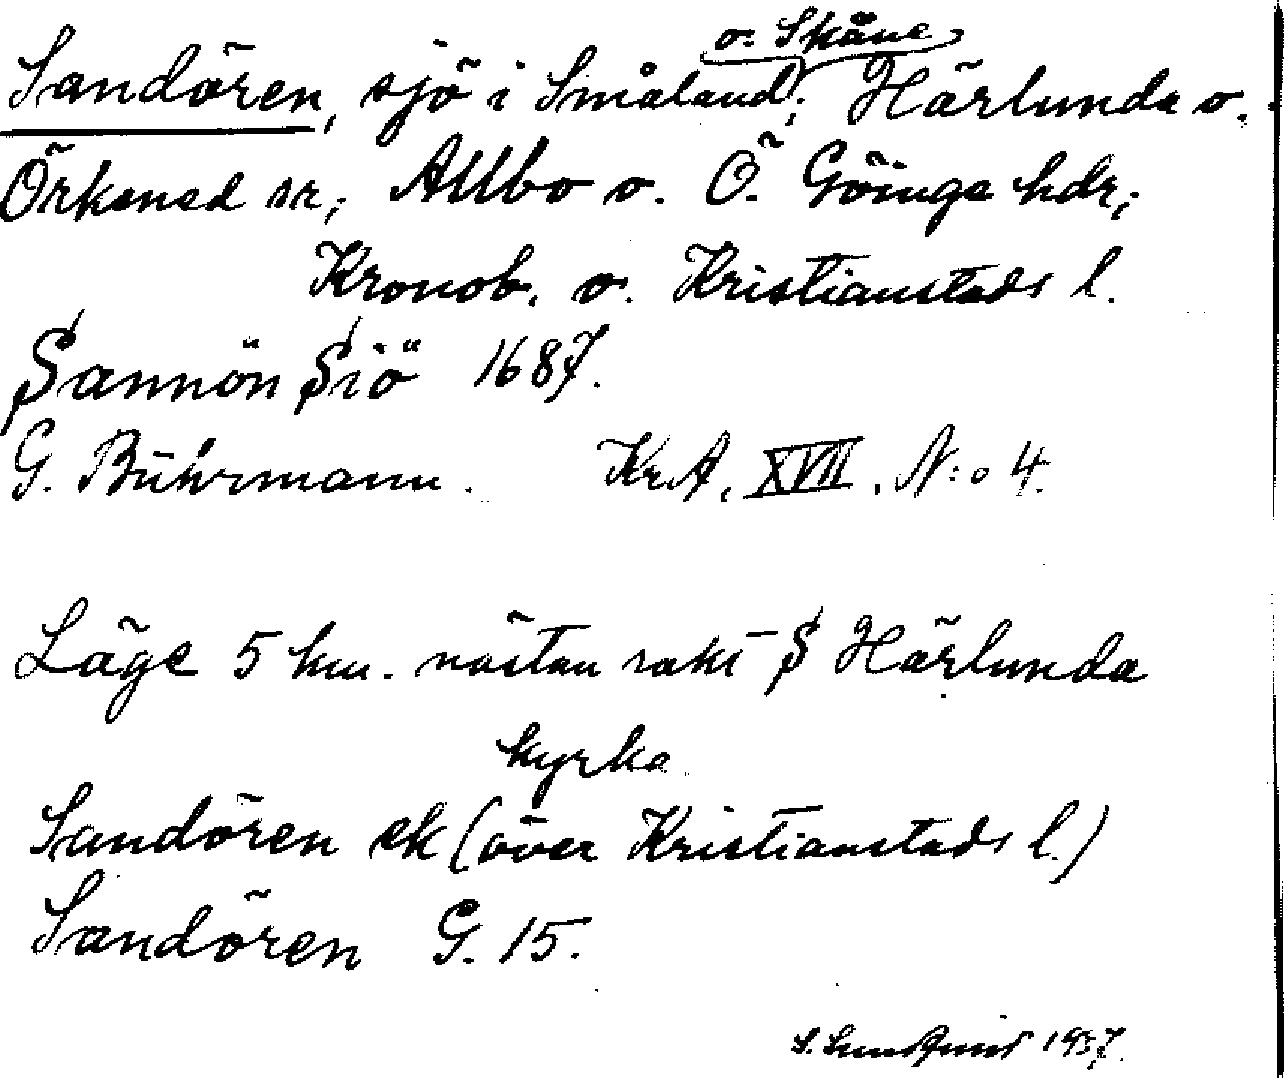 Sandören, sjö i Småland o. Skåne; Härlunda o.
Örkened sr; Allbo o. Ö. Göinge hdr;
Kronob. o. Kristianstads l.
Sannön Siö 1687.
G. Bührmann. KrA, XVII. N:o 4.
Läge 5 km. nästan rakt S Härlunda
kyrka
Sandören ek (över Kristianstads l.)
Sandören G. 15.
1937.